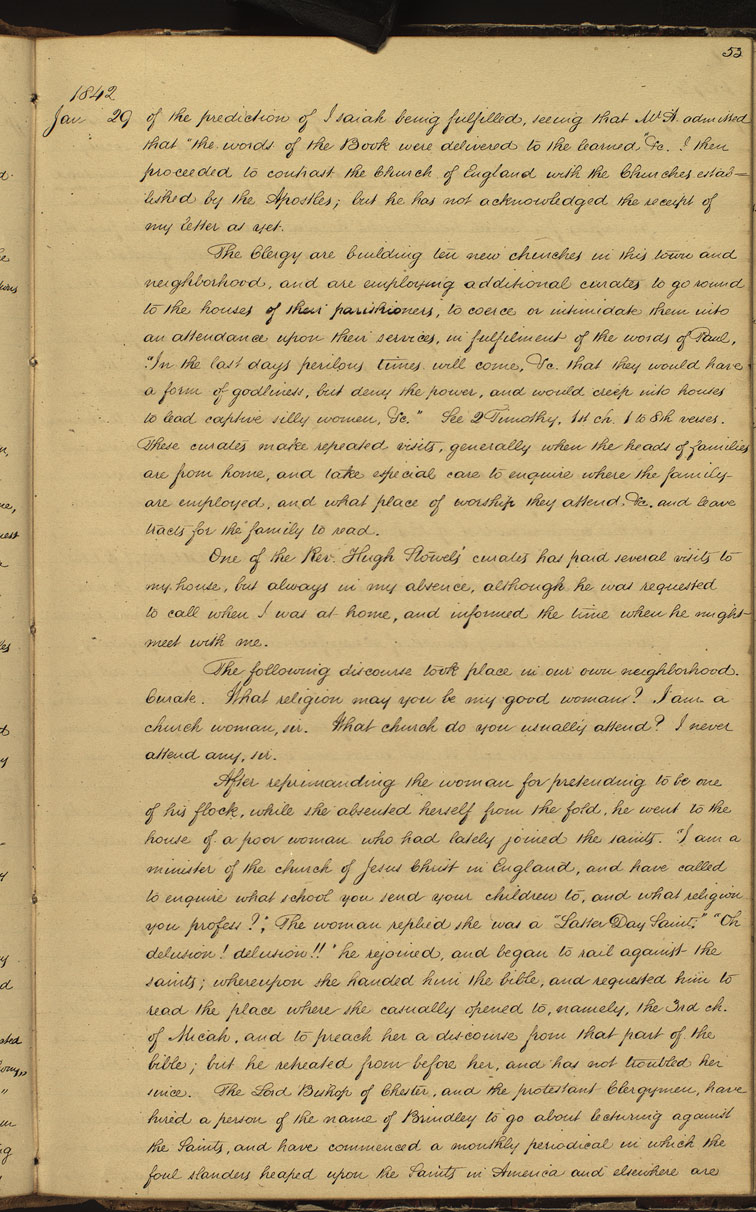 53
1842
Jan 29 of the prediction of Isaiah being fulfilled, seeing that Mr. A. admitted
that "the words of the Book were delivered to the learned" &c. I then
proceeded to contrast the Church of England with the Churches estab=
lished by the Apostles; but he has not acknowledged the receipt of
my letter as yet.
The Clergy are building ten new churches in this town and
neighborhood, and are employing additional curates to go round
to the houses of their parishioners, to coerce or intimidate them into
an attendance upon their services, in fulfilment of the words of Paul,
"In the last days perilous times will come, &c. that they would have
a form of godliness, but deny the power, and would creep into houses
to lead captive silly women, &c." See 2 Timothy, 1st ch. 1 to 8th verses.
These curates make repeated visits, generally when the heads of families
are from home, and take especial care to enquire where the family
are employed, and what place of worship they attend, &c. and leave
tracts for the family to read.
One of the Rev. Hugh Stowels' curates has paid several visits to
my house, but always in my absence, although he was requested
to call when I was at home, and informed the time when he might
meet with me.
The following discourse took place in our own neighborhood.
Curate. What religion may you be my good woman? I am a
church woman, sir. What church do you usually attend? I never
attend any, sir.
After reprimanding the woman for pretending to be one
of his flock, while she absented herself from the fold, he went to the
house of a poor woman who had lately joined the saints. "I am a
minister of the church of Jesus Christ in England, and have called
to enquire what school you send your children to, and what religion
you profess?" The woman replied she was a "Latter Day Saint." "Oh
delusion! delusion!!" he rejoined, and began to rail against the
saints; whereupon she handed him the bible, and requested him to
read the place where she casually opened to, namely, the 3rd ch.
of Micah, and to preach her a discourse from that part of the
bible; but he retreated from before her, and has not troubled her
since. The Lord Bishop of Chester, and the protestant Clergymen, have
hired a person of the name of Brindley to go about lecturing against
the Saints, and have commenced a monthly periodical in which the
foul slanders heaped upon the Saints in America and elsewhere are